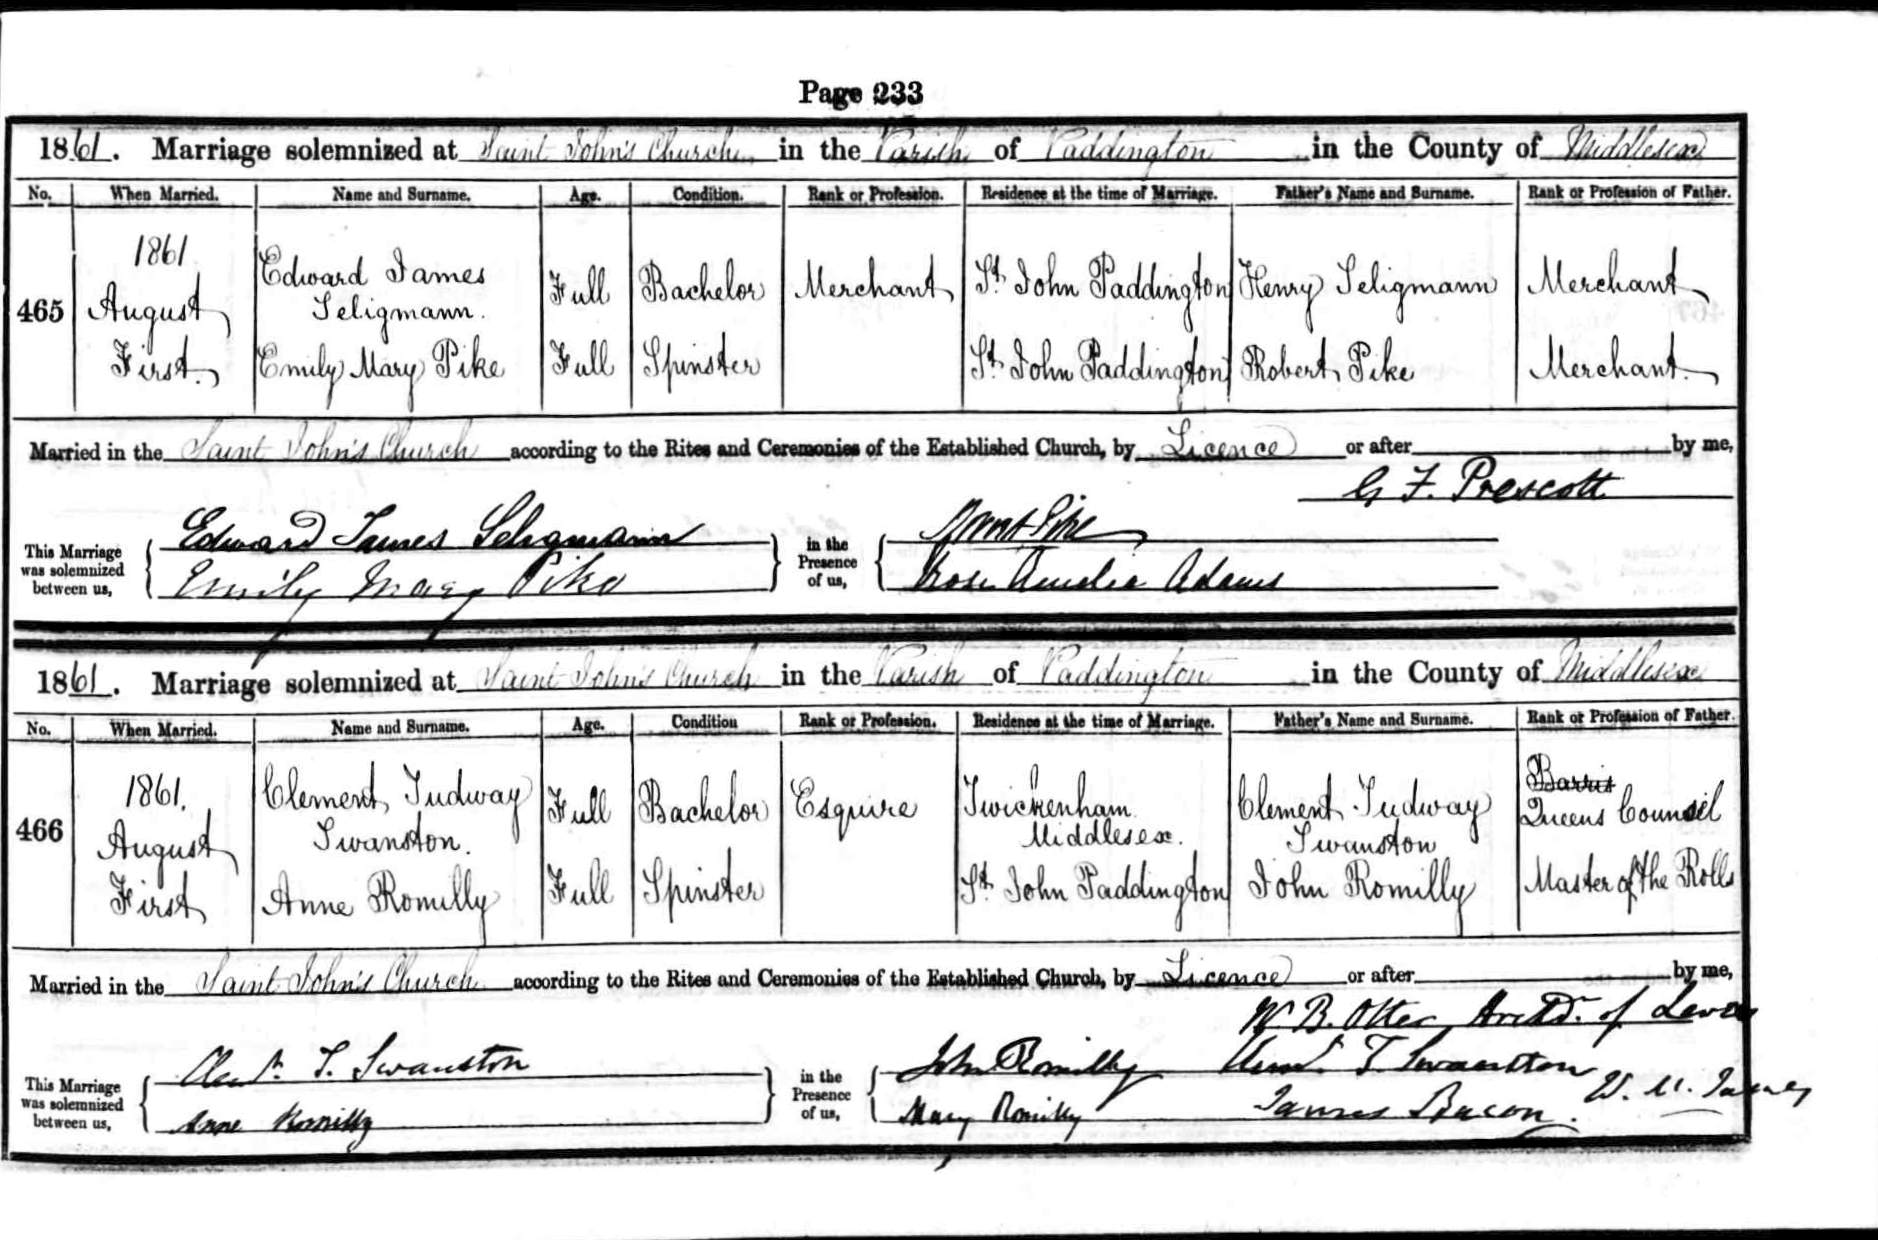 Page 233
1861. Marriage solemnized at Saint John's Church in the Parish of Paddington in the County of Middlesex
No. When Married. Name and Surname. Age. Condition. Rank or Profession. Residence at the time of Marriage. Father's Name and Surname. Rank or Profession of Father.
465
1861
August
First.
Edward James
Seligmann.
Full Bachelor Merchant St. John Paddington Henry Seligmann Merchant
Emily Mary Pike Full Spinster St. John Paddington Robert Pike Merchant.
Married in the Saint John's Church according to the Rites and Ceremonies of the Established Church, by Licence or after by me,
G F. Prescott
This Marriage
was solemnized
between us,
Edward James Seligmann
Emily Mary Pike
in the
Presence
of us,
Pike
Rose Amelia Adams
1861. Marriage solemnized at Saint John's Church in the Parish of Paddington in the County of Middlesex
No. When Married. Name and Surname. Age. Condition Rank or Profession. Residence at the time of Marriage. Father's Name and Surname. Rank or Profession of Father.
466
1861.
August
First
Clement Tudway
Swanston.
Full Bachelor Esquire Twickenham
Middlesex.
Clement Tudway
Swanston
Barris
Queens Counsil
Anne Romilly Full Spinster St. John Paddington John Romilly Master of the Rolls
Married in the Saint John's Church according to the Rites and Ceremonies of the Established Church, by Licence or after by me,
W. B. Otter Archd. of Lewes
This Marriage
was solemnized
between us,
Clemt. T. Swanston
Anne Romilly
in the
Presence
of us,
John Romilly Clemt. T Swanston
Mary Romilly James Bacon. W. M. James